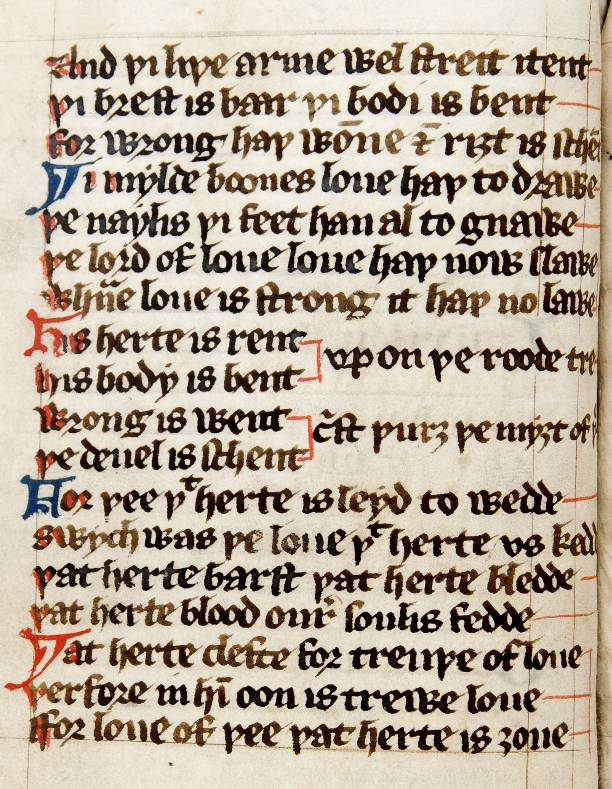 And þi liþe arme wel streit itent
þi brest is baar þi bodi is bent
for wrong haþ wōne & riȝt is schēt
Þi mylde boones loue haþ to drawe
þe naylis þi feet han al to gnawe
þe lord of loue loue haþ now slawe
Whāne loue is strong it haþ no lawe
His herte is rent
his body is bent
vpon þe roode tre
wrong is went
þe deuel is schent
c̄st þurȝ þe myȝt of
For þee þᵗ herte is leyd to wedde
swych was þe loue þᵗ herte vs kedd
þat herte barst þat herte bledde
þat herte blood oure soulis fedde
Þat herte clefte for treuþe of loue
þerfore in hī oon is trewe loue
ffor loue of þee þat herte is ȝoue